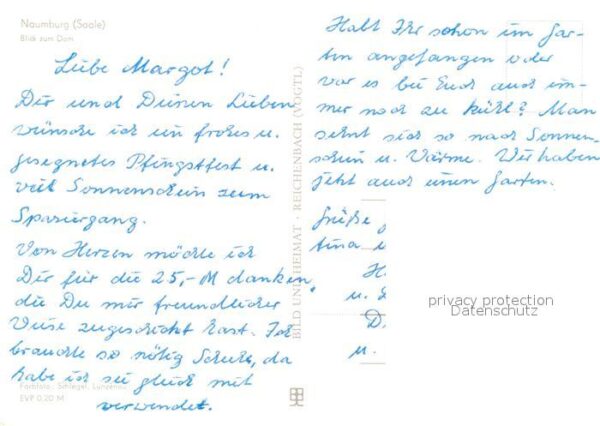 Naumburg (Saale)
Blick zum Dom
Liebe Margot!
Dir und Deinen Lieben
wünsche ich ein frohes u.
gesegnetes Pfingstfest u.
viel Sonnenschein zum
Spaziergang.
Von Herzen möchte ich
Dir für die 25,-M danken,
die Du mir freundlicher
Weise zugeschickt hast. Ich
brauchte so nötig Schuhe, da
habe ich sie gleich mit
verwendet.
Farbfoto: Schlegel, Lunzenau
EVP 0,20 M
BILD UND HEIMAT · REICHENBACH (VOGTL)
Habt Ihr schon im Gar-
ten angefangen oder
war es bei Euch auch im-
mer noch zu kühl? Man
sehnt sich so nach Sonnen-
schein u. Wärme. Wir haben
jetzt auch einen Garten.
Grüße
tina
H
u.
D.
u.
privacy protection
Datenschutz